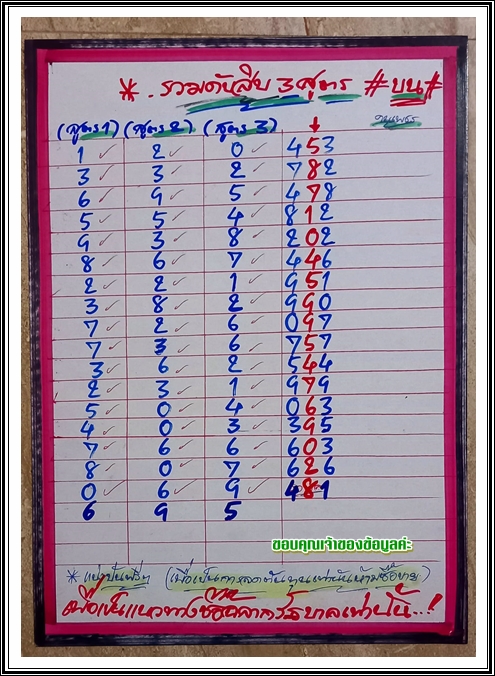 * . รวมดับสิบ 3 สูตร # บน #
(สูตร1) (สูตร2) (สูตร 3) ↓
1 ✓ 2 ✓ 0 ✓ 453
3 ✓ 3 ✓ 2 ✓ 782
6 ✓ 9 ✓ 5 ✓ 478
5 ✓ 5 ✓ 4 ✓ 812
9 ✓ 3 ✓ 8 ✓ 202
8 ✓ 6 ✓ 7 ✓ 446
2 ✓ 2 ✓ 1 ✓ 951
3 ✓ 8 ✓ 2 ✓ 990
7 ✓ 2 ✓ 6 ✓ 097
7 ✓ 3 ✓ 6 ✓ 757
3 ✓ 6 ✓ 2 ✓ 544
2 ✓ 3 ✓ 1 ✓ 979
5 ✓ 0 ✓ 4 ✓ 063
4 ✓ 0 ✓ 3 ✓ 395
7 ✓ 6 ✓ 6 ✓ 603
8 ✓ 0 ✓ 7 ✓ 626
0 ✓ 6 ✓ 9 ✓ 481
6 9 5
ขอบคุณเจ้าของข้อมูลค่ะ
* แบ่งปันฟรีๆ (เพื่อเป็นการลดต้นทุนเท่านั้นห้ามซื้อขาย)
เพื่อเป็นแนวทางซื้อสลากรัฐบาลเท่านั้น..!